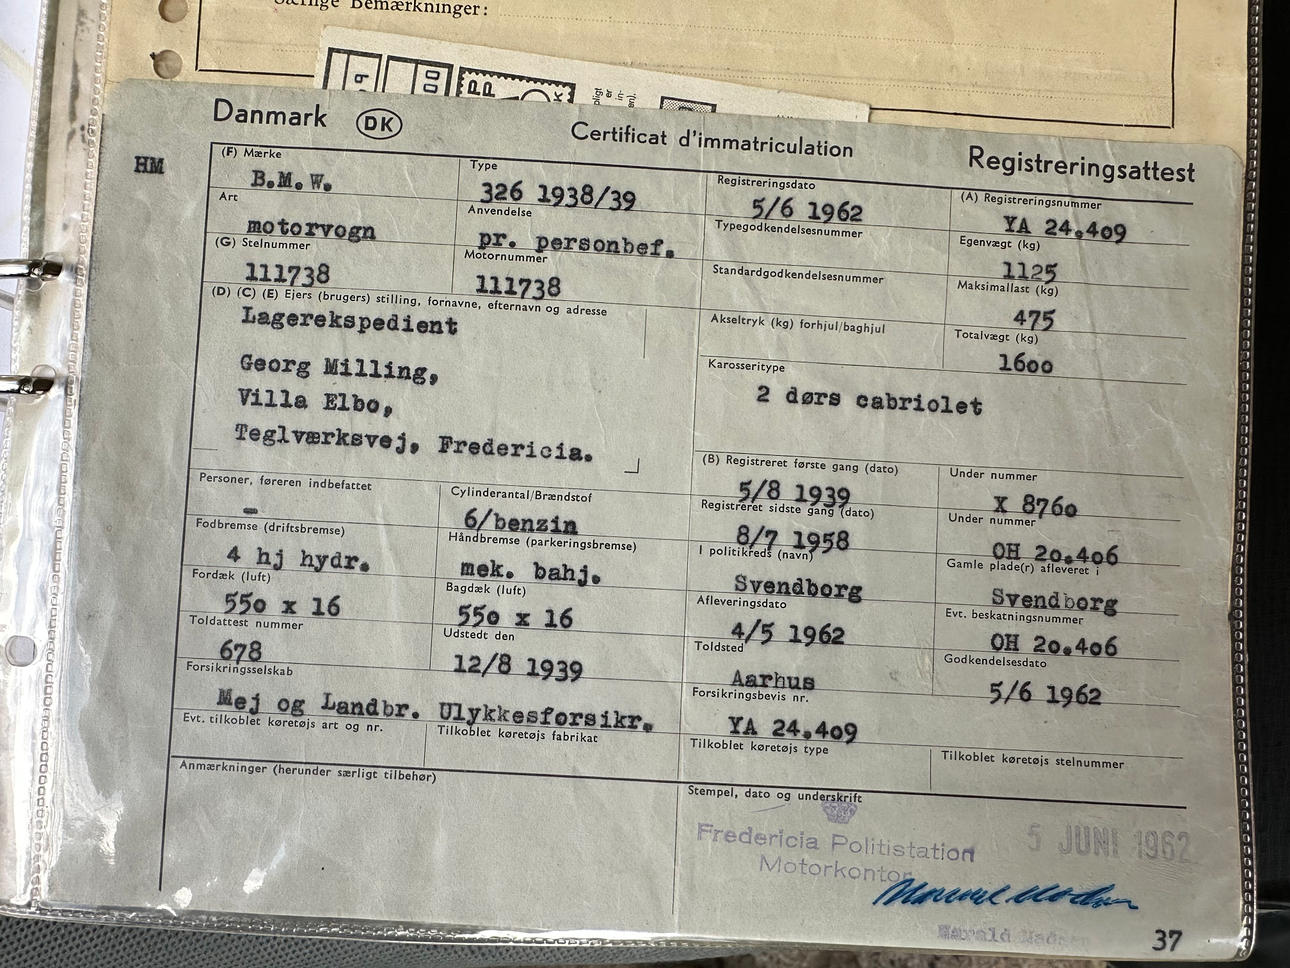 Særlige Bemærkninger:
Danmark DK Certificat d'immatriculation Registreringsattest
HM
(F) Mærke
B.M.W.
Type
326 1938/39
Registreringsdato
5/6 1962
(A) Registreringsnummer
YA 24.409
Art
motorvogn
Anvendelse
pr. personbef.
Typegodkendelsesnummer
Egenvægt (kg)
1125
(G) Stelnummer
111738
Motornummer
111738
Standardgodkendelsesnummer
Maksimallast (kg)
475
(D) (C) (E) Ejers (brugers) stilling, fornavne, efternavn og adresse
Lagerekspedient
Georg Milling,
Villa Elbo,
Teglværksvej, Fredericia.
Akseltryk (kg) forhjul/baghjul
Totalvægt (kg)
1600
Karosseritype
2 dørs cabriolet
(B) Registreret første gang (dato)
5/8 1939
Under nummer
X 8760
Personer, føreren indbefattet
-
Cylinderantal/Brændstof
6/benzin
Registreret sidste gang (dato)
8/7 1958
Under nummer
OH 20.406
Fodbremse (driftsbremse)
4 hj hydr.
Håndbremse (parkeringsbremse)
mek. bahj.
I politikreds (navn)
Svendborg
Gamle plade(r) afleveret i
Svendborg
Fordæk (luft)
550 x 16
Bagdæk (luft)
550 x 16
Afleveringsdato
4/5 1962
Evt. beskatningsnummer
OH 20.406
Toldattest nummer
678
Udstedt den
12/8 1939
Toldsted
Aarhus
Godkendelsesdato
5/6 1962
Forsikringsselskab
Mej og Landbr. Ulykkesforsikr.
Forsikringsbevis nr.
YA 24.409
Evt. tilkoblet køretøjs art og nr.
Tilkoblet køretøjs fabrikat
Tilkoblet køretøjs type
Tilkoblet køretøjs stelnummer
Anmærkninger (herunder særligt tilbehør)
Stempel, dato og underskrift
Fredericia Politistation
Motorkontor
5 JUNI 1962
37